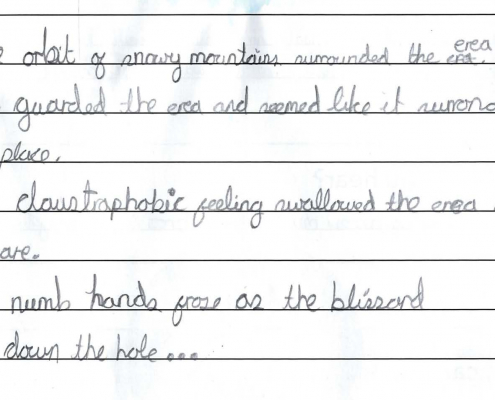 orbit of snowy mountains surrounded the erea
guarded the erea and seemed like it
place.
claustraphobic feeling swallowed the erea
are.
numb hands froze as the blizzard
down the hole...